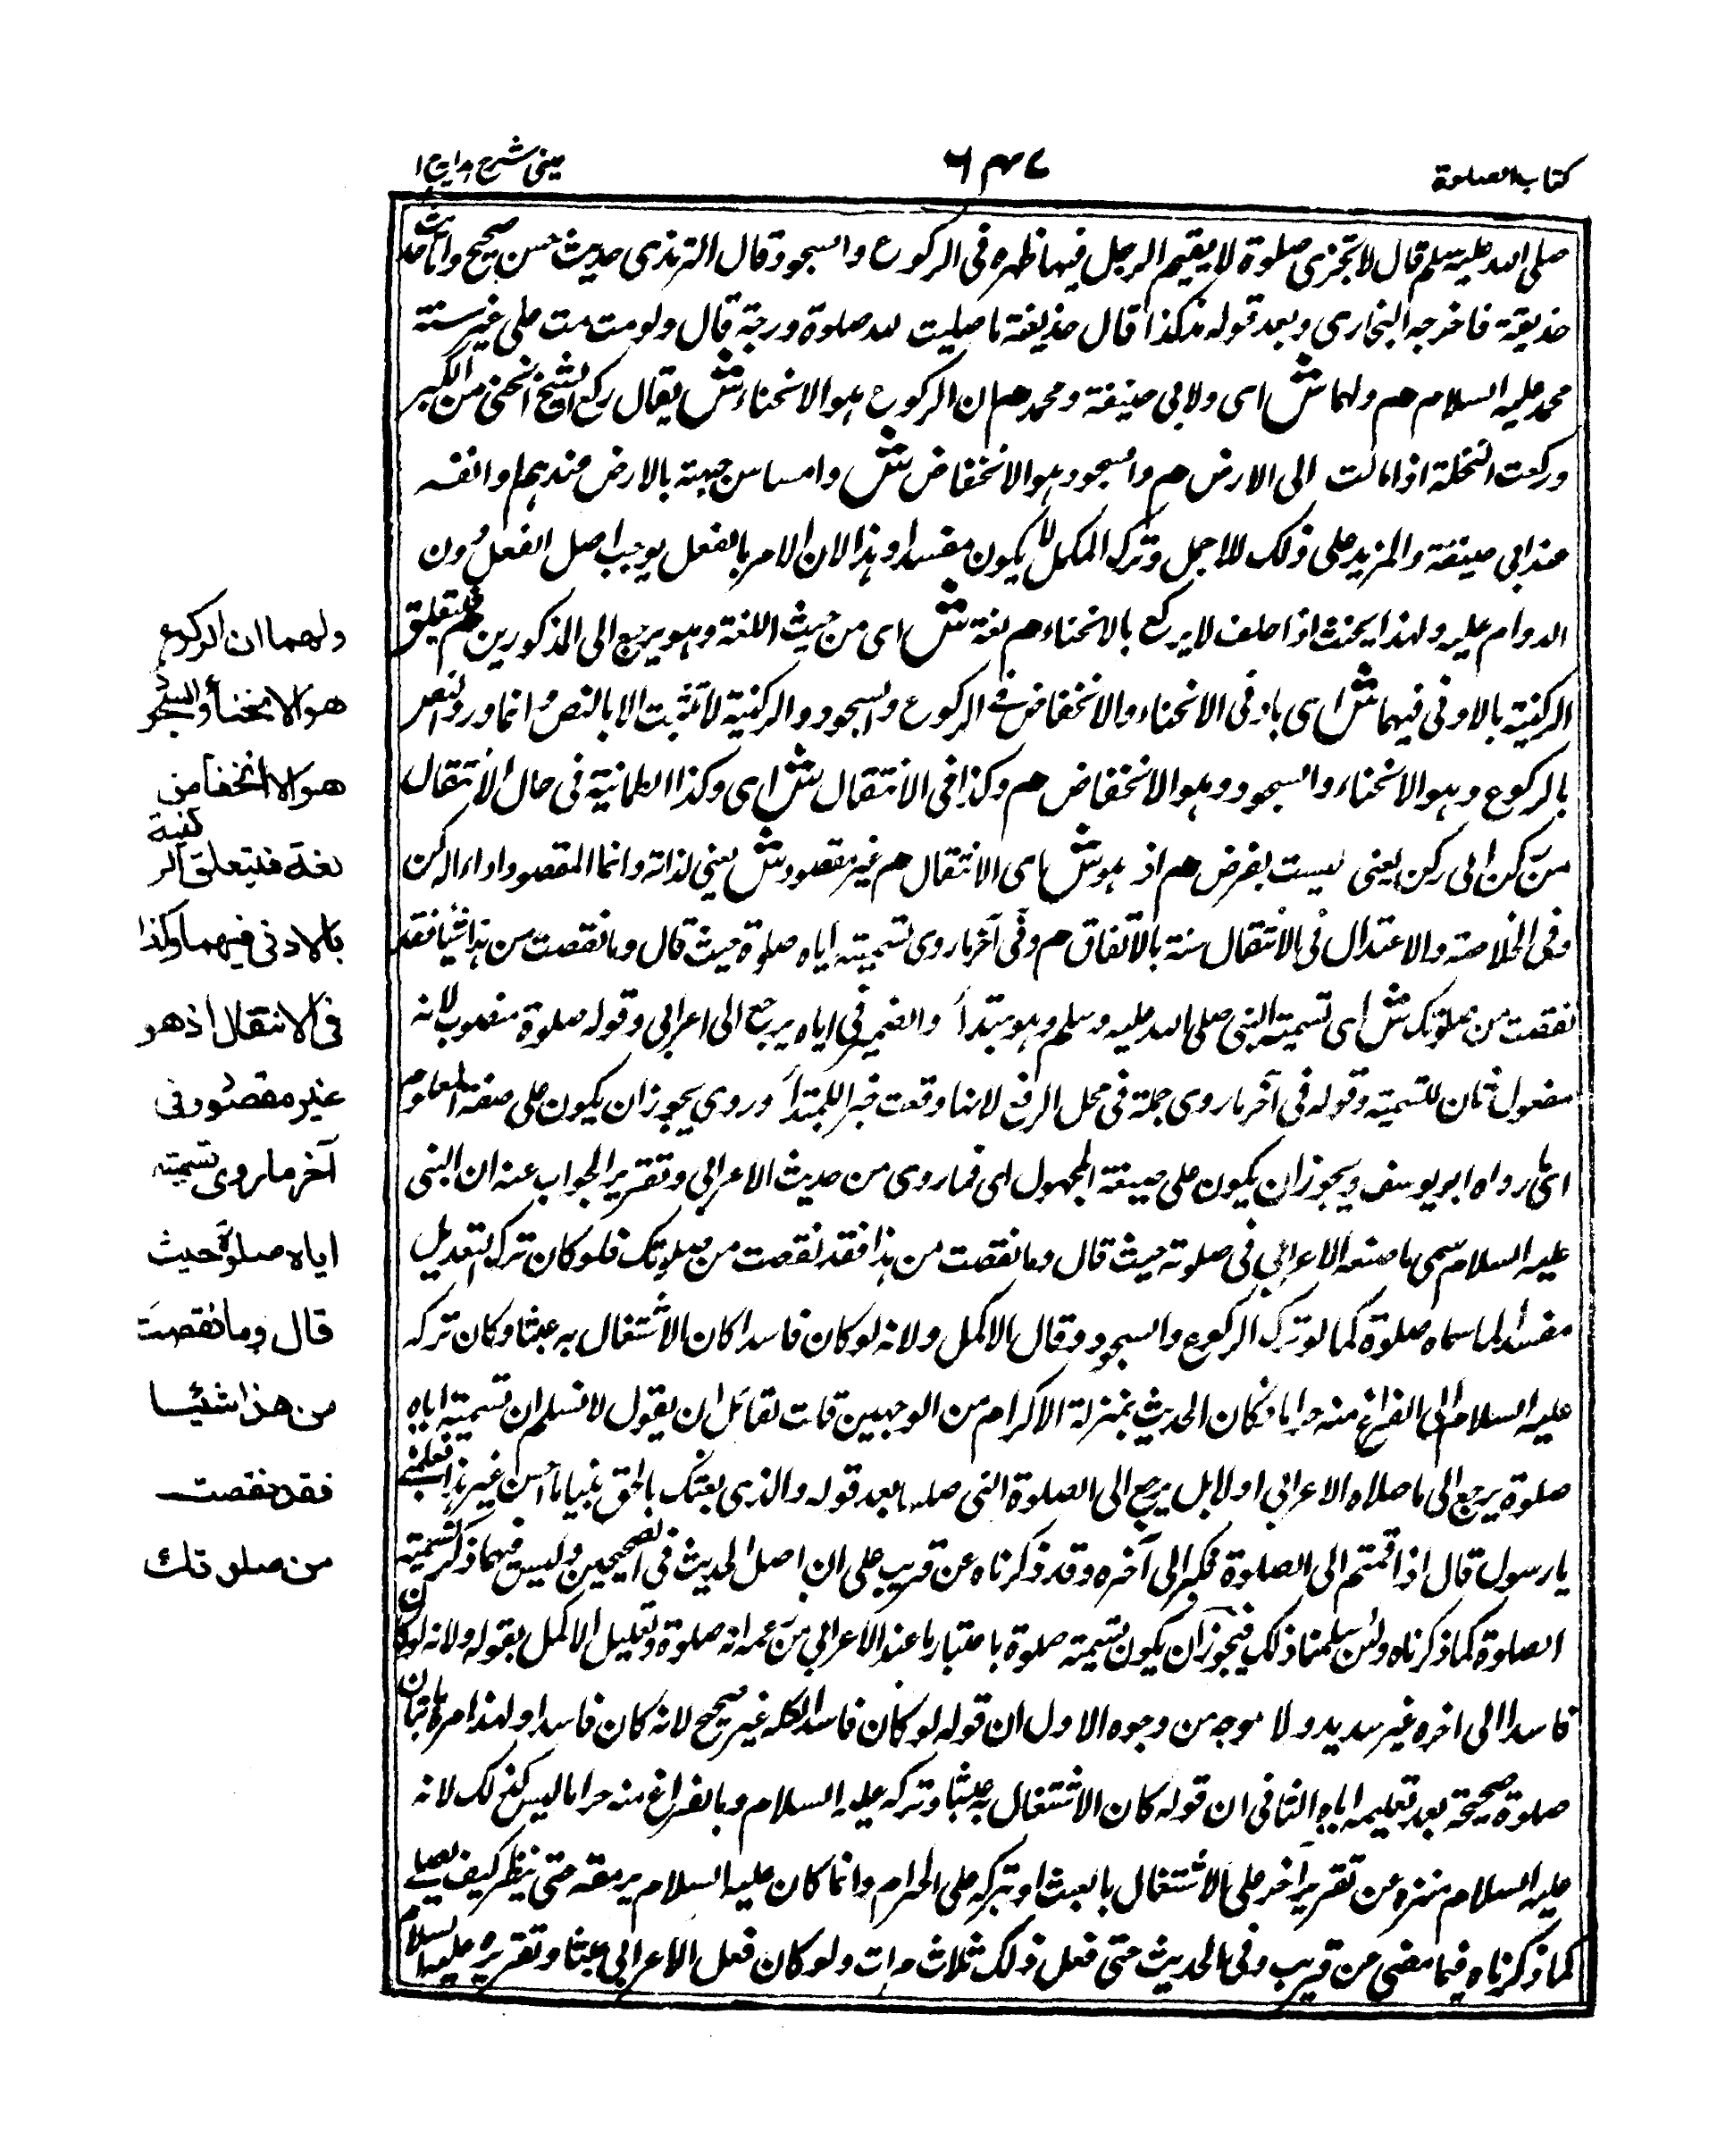 كتاب الصلوة
٦٤٧
عینی شرح ہدایہ ج ١
صلی اللہ علیہ وسلم قال لا تجزی صلوة لا یقیم الرجل فیہا ظہرہ فی الرکوع والسجود وقال الترمذی حدیث حسن صحیح واما حدیث
حذیفة فاخرجہ البخاری وبعد قولہ ہکذا قال حذیفة ما صلیت للہ صلوة ورجة قال ولو مت مت علی غیر سنة
محمد علیہ السلام ھم ولہما ش ای ولابی حنیفة ومحمد ھم ان الرکوع ہو الانحناء ش یقال رکع الشیخ انحنی من الکبر
ورکعت النخلة اذا مالت الی الارض ھم والسجود ہو الانخفاض ش وامساس جبہتہ بالارض عندہما وانفہ
عند ابی حنیفة والمزید علی ذلک للاجمل وترک المکمل لا یکون مفسدا وہذا لان الامر بالفعل یوجب اصل الفعل دون
الدوام علیہ ولہذا یحنث اذا حلف لا یرکع بالانحناء ھم لغة ش ای من حیث اللغة وہو یرجع الی المذکورین ھم فتعلق
الرکنیة بالادنی فیہما ش ای بادنی الانحناء والانخفاض فی الرکوع والسجود والرکنیة لا تثبت الا بالنص وانما ورد النص
بالرکوع وہو الانحناء والسجود وہو الانخفاض ھم وکذا فی الانتقال ش ای وکذا الطمانیة فی حال الانتقال
من رکن الی رکن یعنی لیست بفرض ھم اذ ہو ش ای الانتقال ھم غیر مقصود ش یعنی لذاتہ وانما المقصود اداء الرکن
وفی الخلاصة والاعتدال فی الانتقال سنة بالاتفاق ھم وفی آخر ما روی تسمیتہ ایاہ صلوة حیث قال وما نقصت من ہذا شیئا فقد
نقصت من صلوتک ش ای تسمیة النبی صلی اللہ علیہ وسلم وہو مبتدأ والضمیر فی ایاہ یرجع الی اعرابی وقولہ صلوة منصوب لانہ
مفعول ثان للتسمیة وقولہ فی آخر ما روی جملة فی محل الرفع لانہا وقعت خبرا للمبتدأ وروی یجوز ان یکون علی صیغة المعلوم
ای ما رواہ ابو یوسف ویجوز ان یکون علی صیغة المجہول ای فیما روی من حدیث الاعرابی وتقریر الجواب عنہ ان النبی
علیہ السلام سمی ما صنعہ الاعرابی فی صلوتہ حیث قال وما نقصت من ہذا فقد نقصت من صلوتک فلو کان ترک التعدیل
مفسدا لما سماہ صلوة کما لو ترک الرکوع والسجود وقال الاکمل ولانہ لو کان فاسدا کان الاشتغال بہ عبثا وکان ترکہ
علیہ السلام الی الفراغ منہ حراما فکان الحدیث بمنزلة الاکرام من الوجہین قلت لقائل ان یقول لا نسلم ان تسمیتہ ایاہ
صلوة یرجع الی ما صلاہ الاعرابی اولا بل یرجع الی الصلوة التی صلہا بعد قولہ والذی بعثک بالحق نبیا ما احسن غیر ہذا فعلمنی
یا رسول قال اذا قمتم الی الصلوة فکبر الی آخرہ وقد ذکرناہ عن قریب علی ان اصل الحدیث فی الصحیحین ولیس فیہما ذکر تسمیة
الصلوة کما ذکرناہ ولئن سلمنا ذلک فیجوز ان یکون تسمیتہ صلوة باعتبار ما عند الاعرابی من زعمہ انہ صلوة وتعلیل الاکمل بقولہ ولانہ لو کان
فاسدا الی اخرہ غیر سدید ولا موجہ من وجوہ الاول ان قولہ لو کان فاسدا لکلہ غیر صحیح لانہ کان فاسدا ولہذا امرہ باتیان
صلوة صحیحة بعد تعلیمہ ایاہ الثانی ان قولہ کان الاشتغال بہ عبثا وترکہ علیہ السلام وبالفراغ منہ حراما لیس کذلک لانہ
علیہ السلام منزہ عن تقریر آخر علی الاشتغال بالعبث او ترکہ علی الحرام وانما کان علیہ السلام یرمقہ حتی ینظر کیف یصلی
کما ذکرناہ فیما مضی عن قریب وفی الحدیث حتی فعل ذلک ثلاث مرات ولو کان فعل الاعرابی عبثا وتقریرہ علیہ السلام
ولهما ان الركوع
هو الانحناء والسجود
هو الانخفاض
لغة فتتعلق الركنية
بالادنى فيهما وكذا
فى الانتقال اذ هو
غير مقصود وفى
آخر ما روى تسميته
اياه صلوة حيث
قال وما نقصت
من هذا شيئا
فقد نقصت
من صلوتك